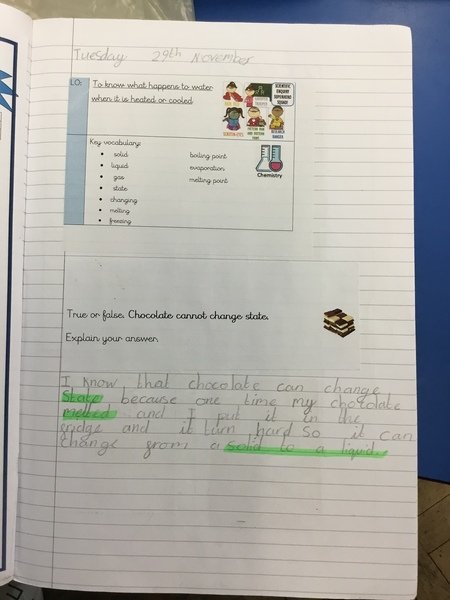 Tuesday 29th November
LO:
To know what happens to water
when it is heated or cooled
SCIENTIFIC
ENQUIRY
SUPERHERO
SQUAD
Key vocabulary:
• solid
• liquid
• gas
• state
• changing
• melting
• freezing
boiling point
evaporation
melting point
Chemistry
True or false. Chocolate cannot change state.
Explain your answer.
I know that chocolate can change
state because one time my chocolate
melted and I put it in the
fridge and it turn hard so it can
change from a solid to a liquid.